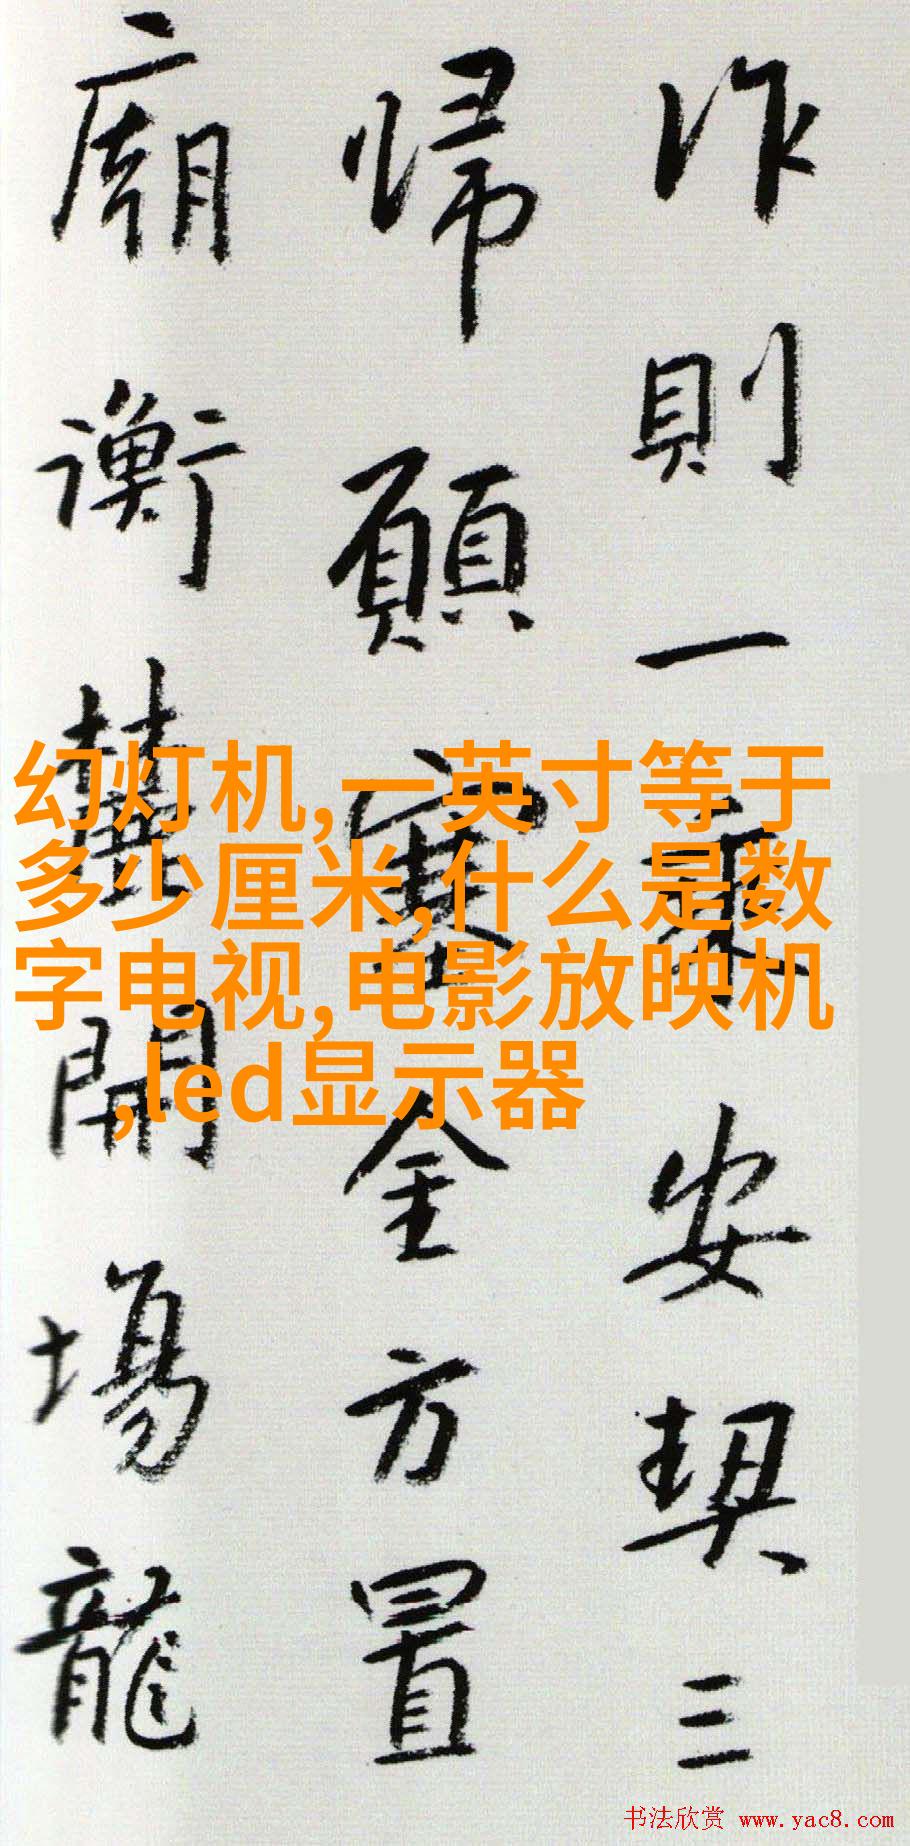 作則一乘安契三
帰願塞全方置
廟衡開場龍
幻灯机,一英寸等于
多少厘米,什么是数
字电视,电影放映机
,led显示器
书法欣赏 www.yac8.com